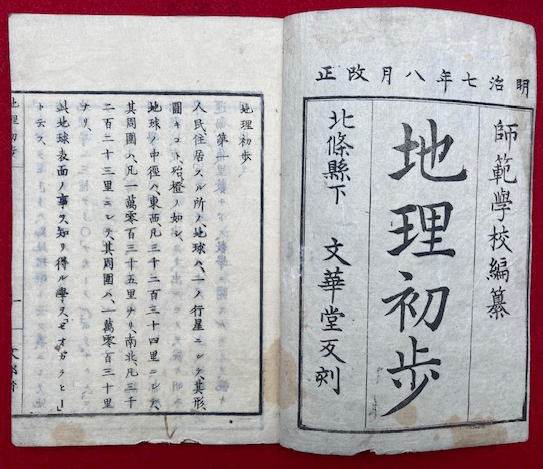 明治七年八月改正
師範學校編纂
地理初步
北條縣下 文華堂反刻
地理初歩
第一
人民住居スル所ノ地球ハ、一ノ行星ニシテ、其形、
圓キコト、殆橙ノ如シ、
地球ノ中徑ハ、東西凡三千二百三十四里ニシテ、
其周圍ハ、凡一萬零百三十五里ナリ、南北、凡三千
二百二十三里ニシテ、其周圍ハ、一萬零百三十里
ナリ、
此地球表面ノ事ヲ、知リ得ル學ヲ、「ゼオガラヒー」
ト云フ、
地理初歩